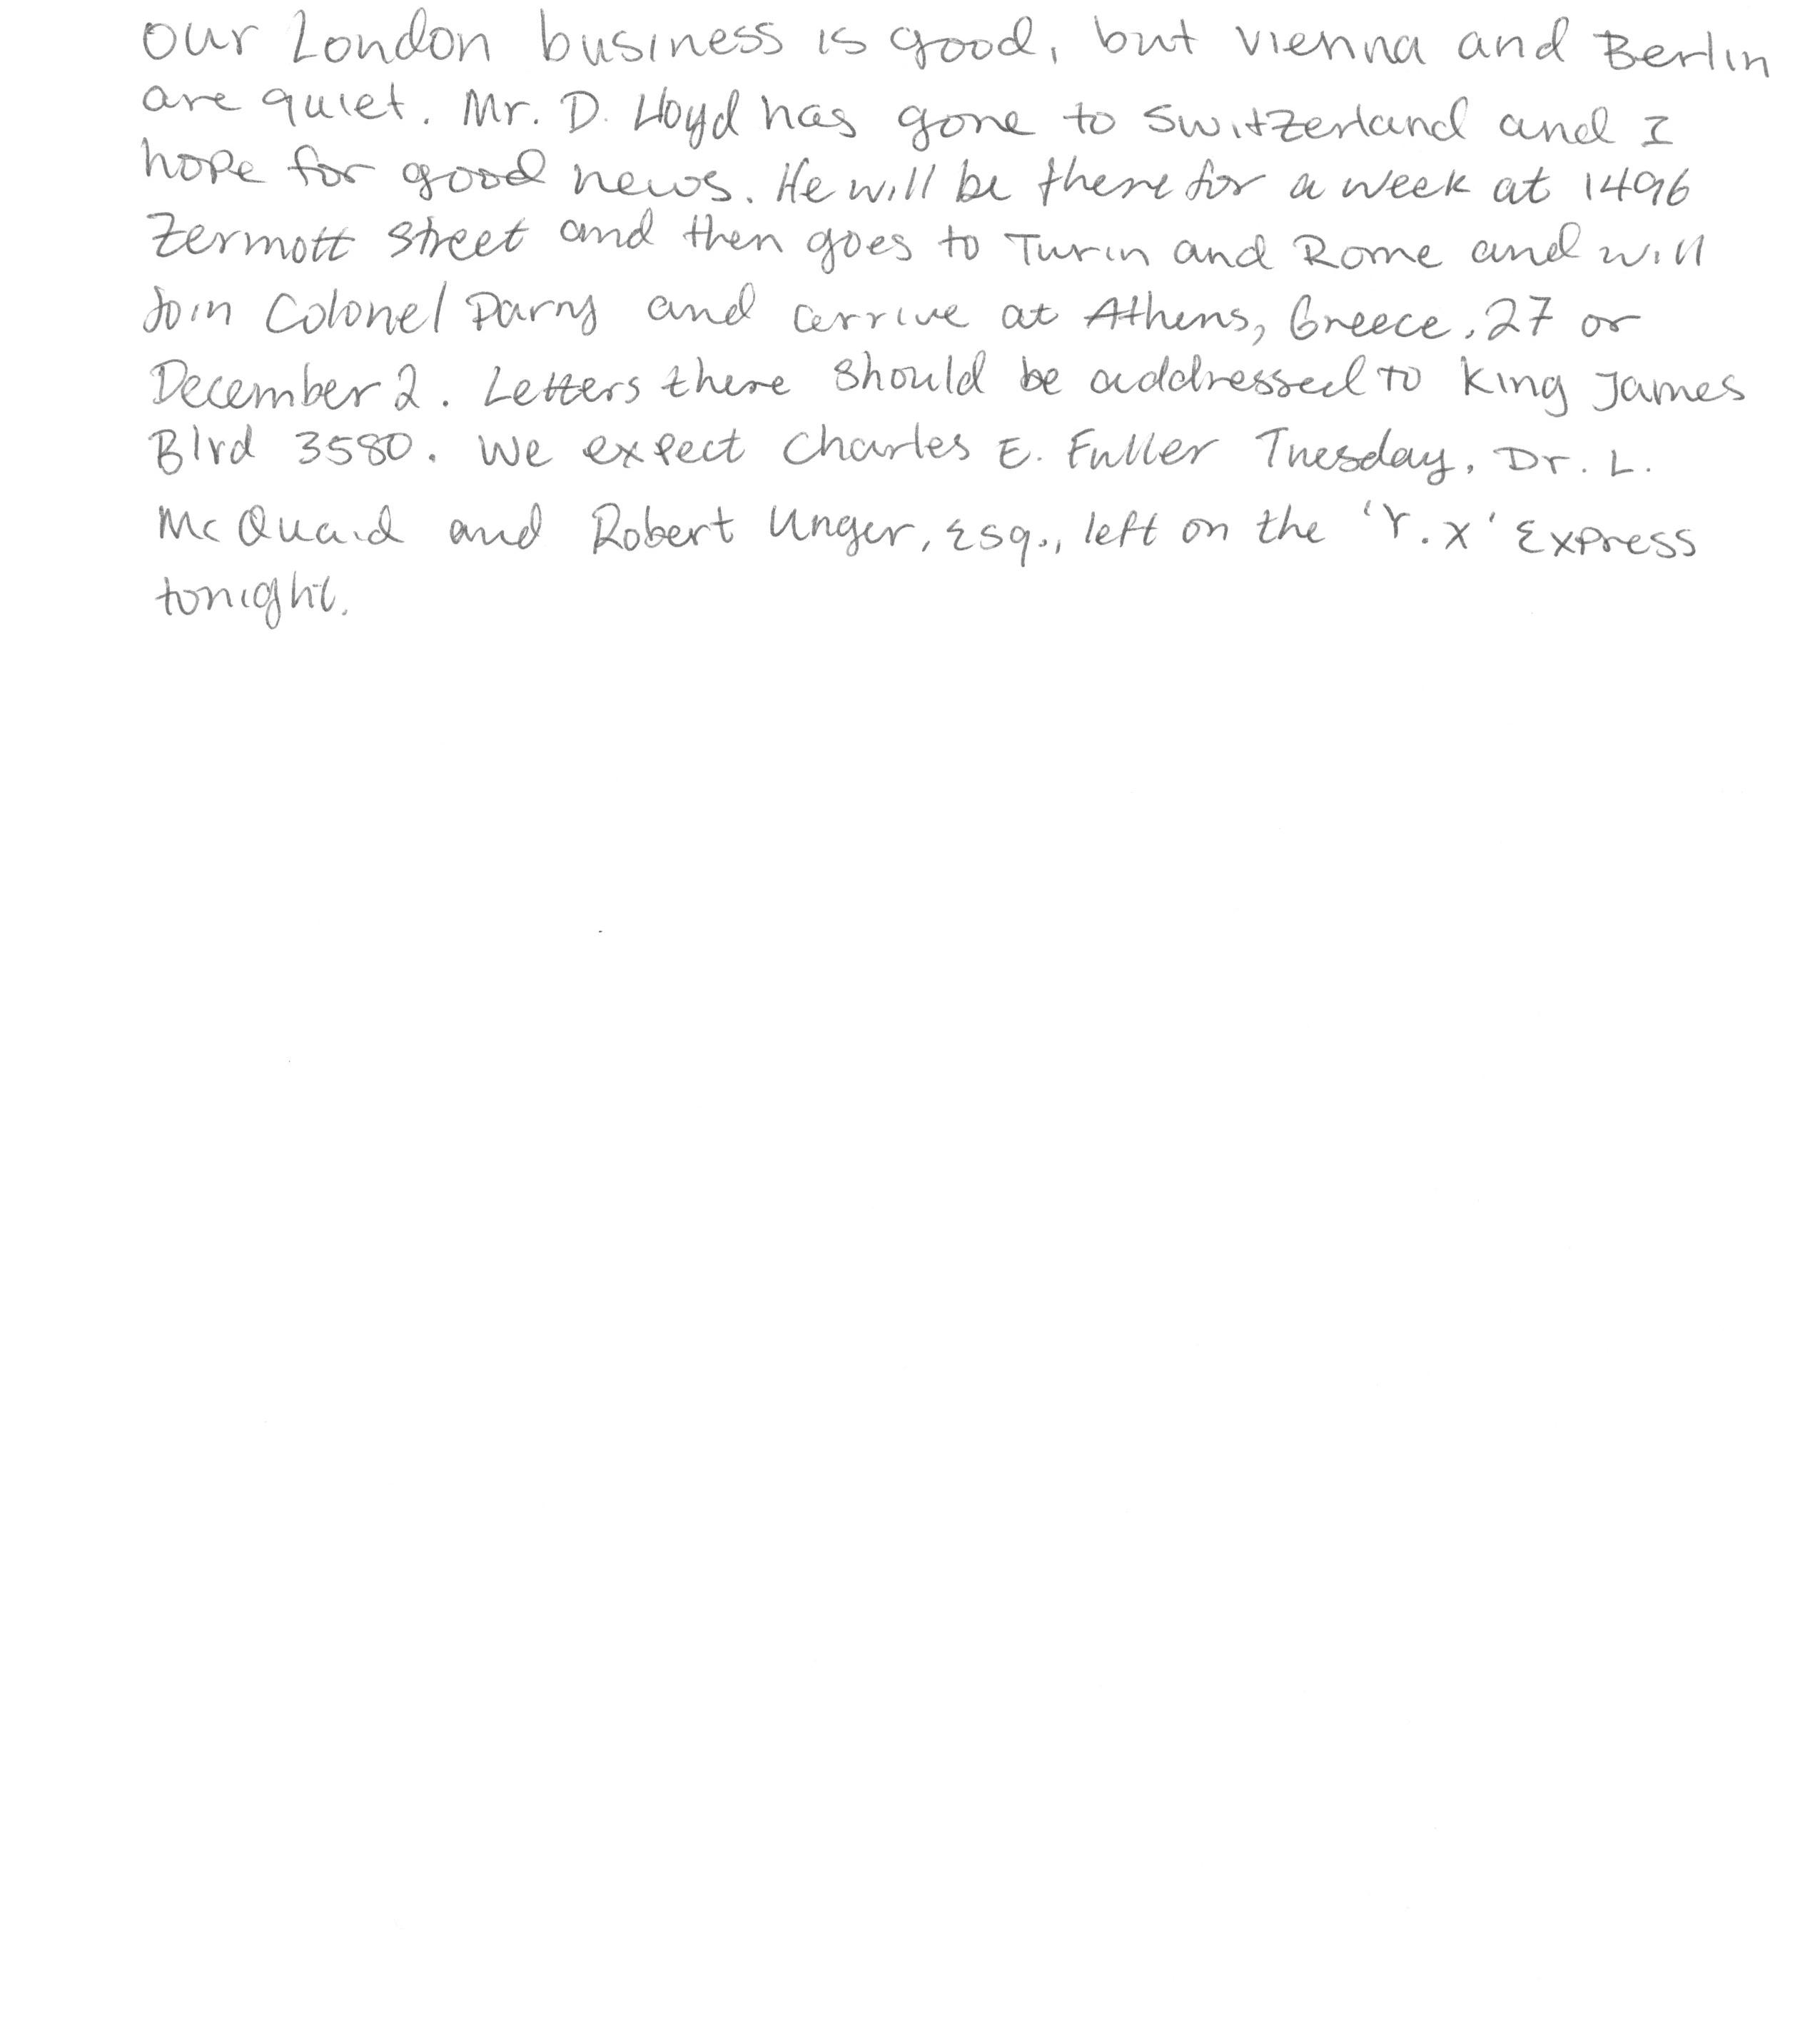 Our London business is good, but Vienna and Berlin
are quiet. Mr. D. Lloyd has gone to Switzerland and I
hope for good news. He will be there for a week at 1496
Zermott street and then goes to Turin and Rome and will
Join Colonel Parry and arrive at Athens, Greece, 27 or
December 2. Letters there should be addressed to King James
Blvd 3580. We expect Charles E. Fuller Tuesday. Dr. L.
McQuaid and Robert Unger, Esq., left on the 'Y.X' Express
tonight.